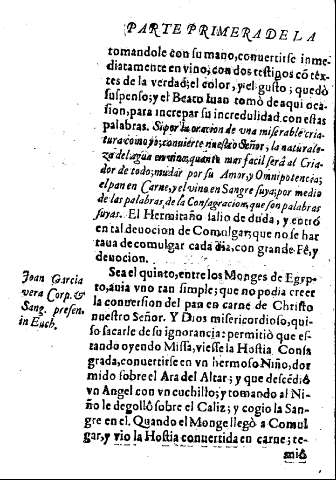 PARTE PRIMERA DE LA
tomandole con su mano, conuertirse inme-
diatamente en vino; con dos testigos cõtẽx-
tes de la verdad; el color, y el gusto; quedò
suspenso; y el Beato Iuan tomò de aqui oca-
sion, para increpar su incredulidad con estas
palabras. Si por la oracion de vna miserable cria-
tura como yo; conuierte nuestro Señor, la naturale-
za del agua en vino; quanto mas facil serà al Cria-
dor de todo; mudar por su Amor, y Omnipotencia;
el pan en Carne, y el vino en Sangre suya; por medio
de las palabras, de la Consagracion, que son palabras
suyas. El Hermitaño salio de duda, y entrò
en tal deuocion de Comulgar; que no se har
taua de comulgar cada dia, con grande Fè, y
deuocion.
Sea el quinto, entre los Monges de Egyp-
to, auia vno tan simple; que no podia creer
la conuersion del pan en carne de Christo
nuestro Señor. Y Dios misericordioso, qui-
so sacarle de su ignorancia: permitiò que es-
tando oyendo Missa, viesse la Hostia Consa
grada, conuertirse en vn hermoso Niño, dor
mido sobre el Ara del Altar; y que descẽdiò
vn Angel con vn cuchillo; y tomando al Ni-
ño le degollò sobre el Caliz; y cogio la San-
gre en el. Quando el Monge llegò a Comul
gar, y vio la Hostia conuertida en carne; te-
miò
Joan Garcia
vera Corp. &
Sang. presen.
in Euch.